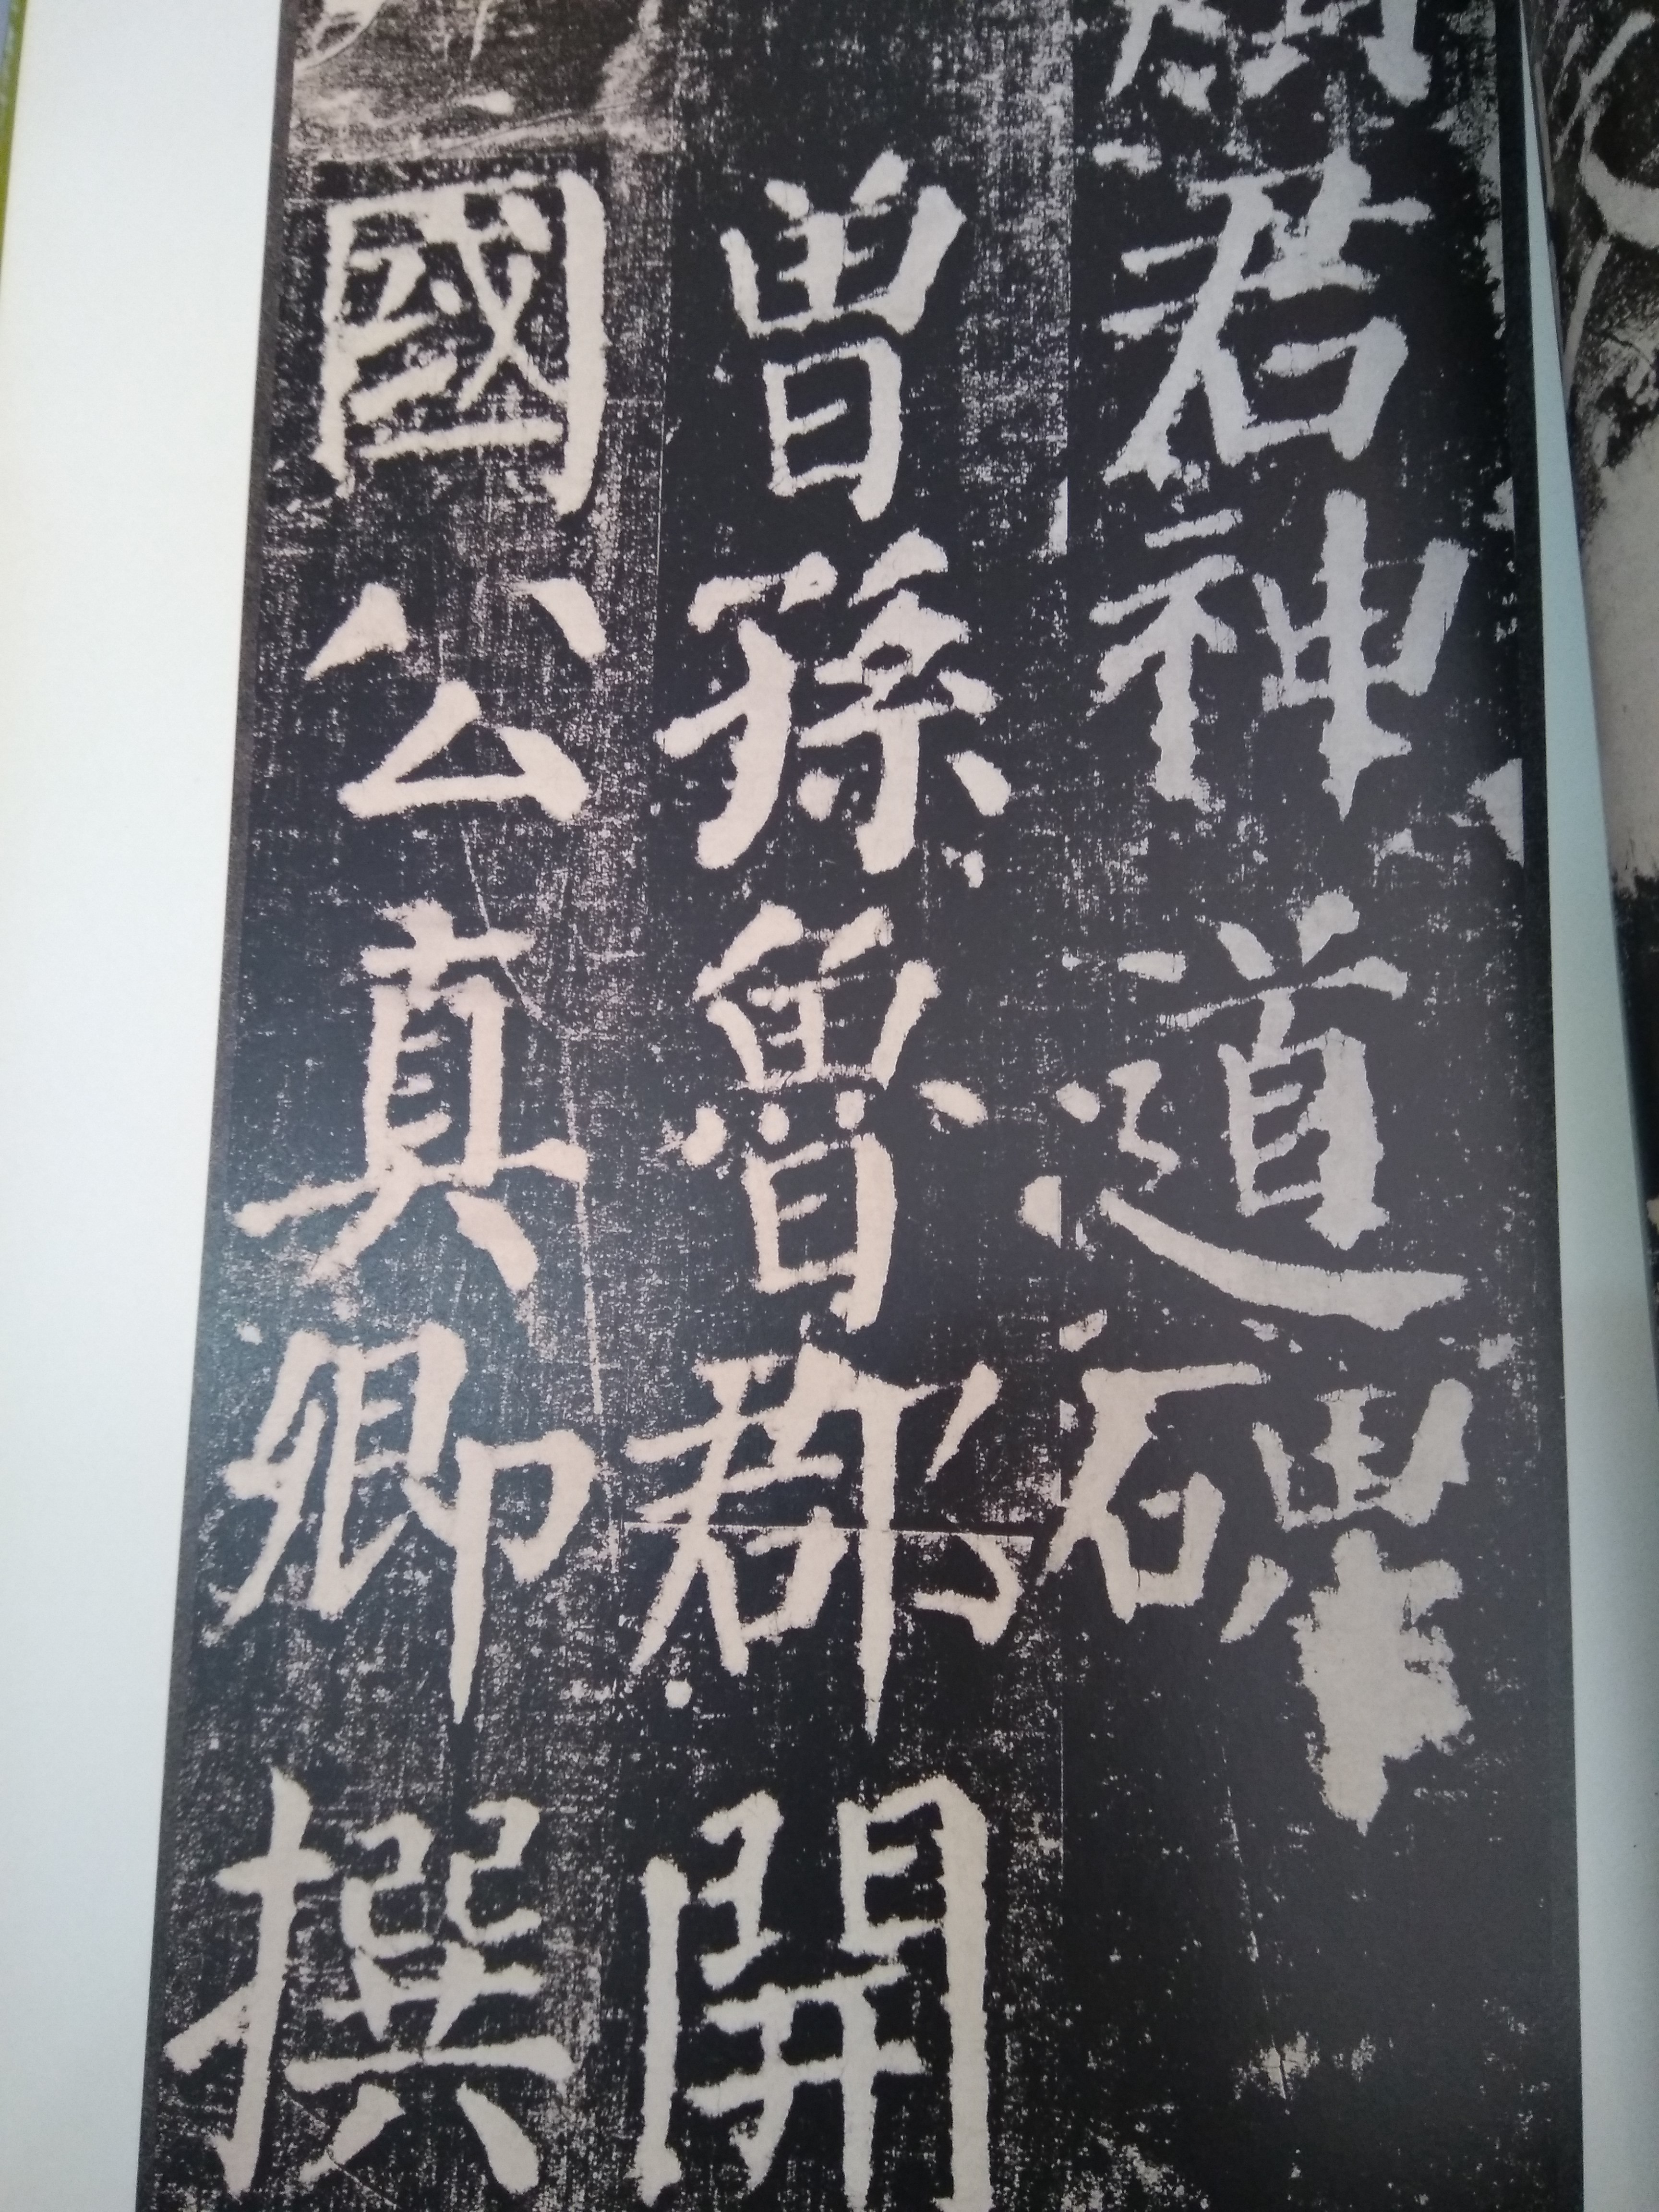 君神道碑
曾孫魯郡開
國公真卿撰